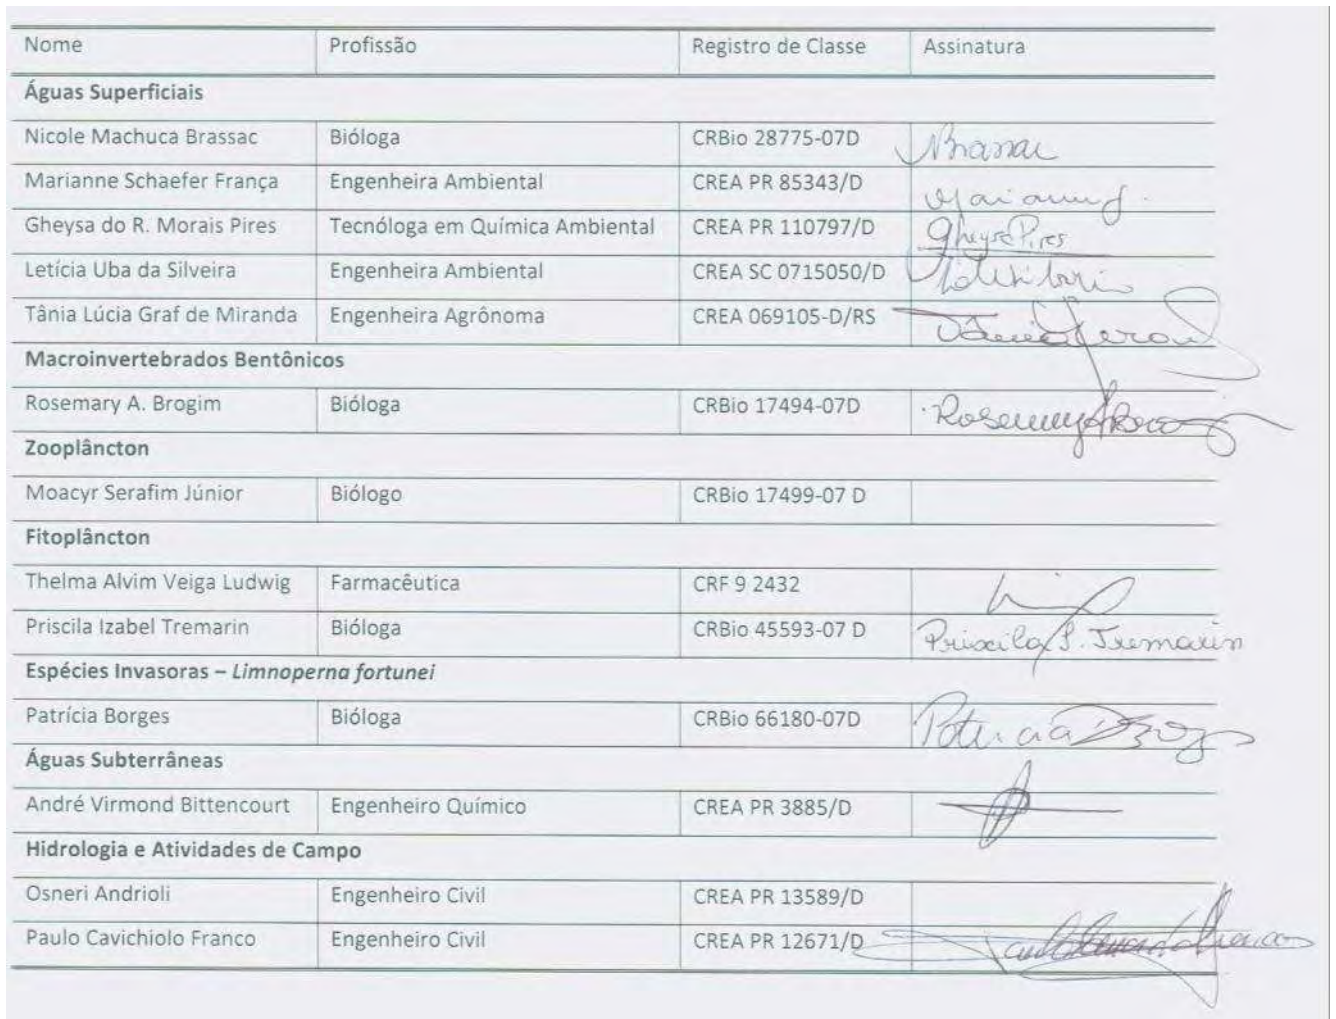 Nome Profissão Registro de Classe Assinatura
Águas Superficiais
Nicole Machuca Brassac Bióloga CRBio 28775-07D
Marianne Schaefer França Engenheira Ambiental CREA PR 85343/D
Gheysa do R. Morais Pires Tecnóloga em Química Ambiental CREA PR 110797/D Gheysa Pires
Letícia Uba da Silveira Engenheira Ambiental CREA SC 0715050/D
Tânia Lúcia Graf de Miranda Engenheira Agrônoma CREA 069105-D/RS
Macroinvertebrados Bentônicos
Rosemary A. Brogim Bióloga CRBio 17494-07D
Zooplâncton
Moacyr Serafim Júnior Biólogo CRBio 17499-07 D
Fitoplâncton
Thelma Alvim Veiga Ludwig Farmacêutica CRF 9 2432
Priscila Izabel Tremarin Bióloga CRBio 45593-07 D Priscila I. Tremarin
Espécies Invasoras – Limnoperna fortunei
Patrícia Borges Bióloga CRBio 66180-07D
Águas Subterrâneas
André Virmond Bittencourt Engenheiro Químico CREA PR 3885/D
Hidrologia e Atividades de Campo
Osneri Andrioli Engenheiro Civil CREA PR 13589/D
Paulo Cavichiolo Franco Engenheiro Civil CREA PR 12671/D